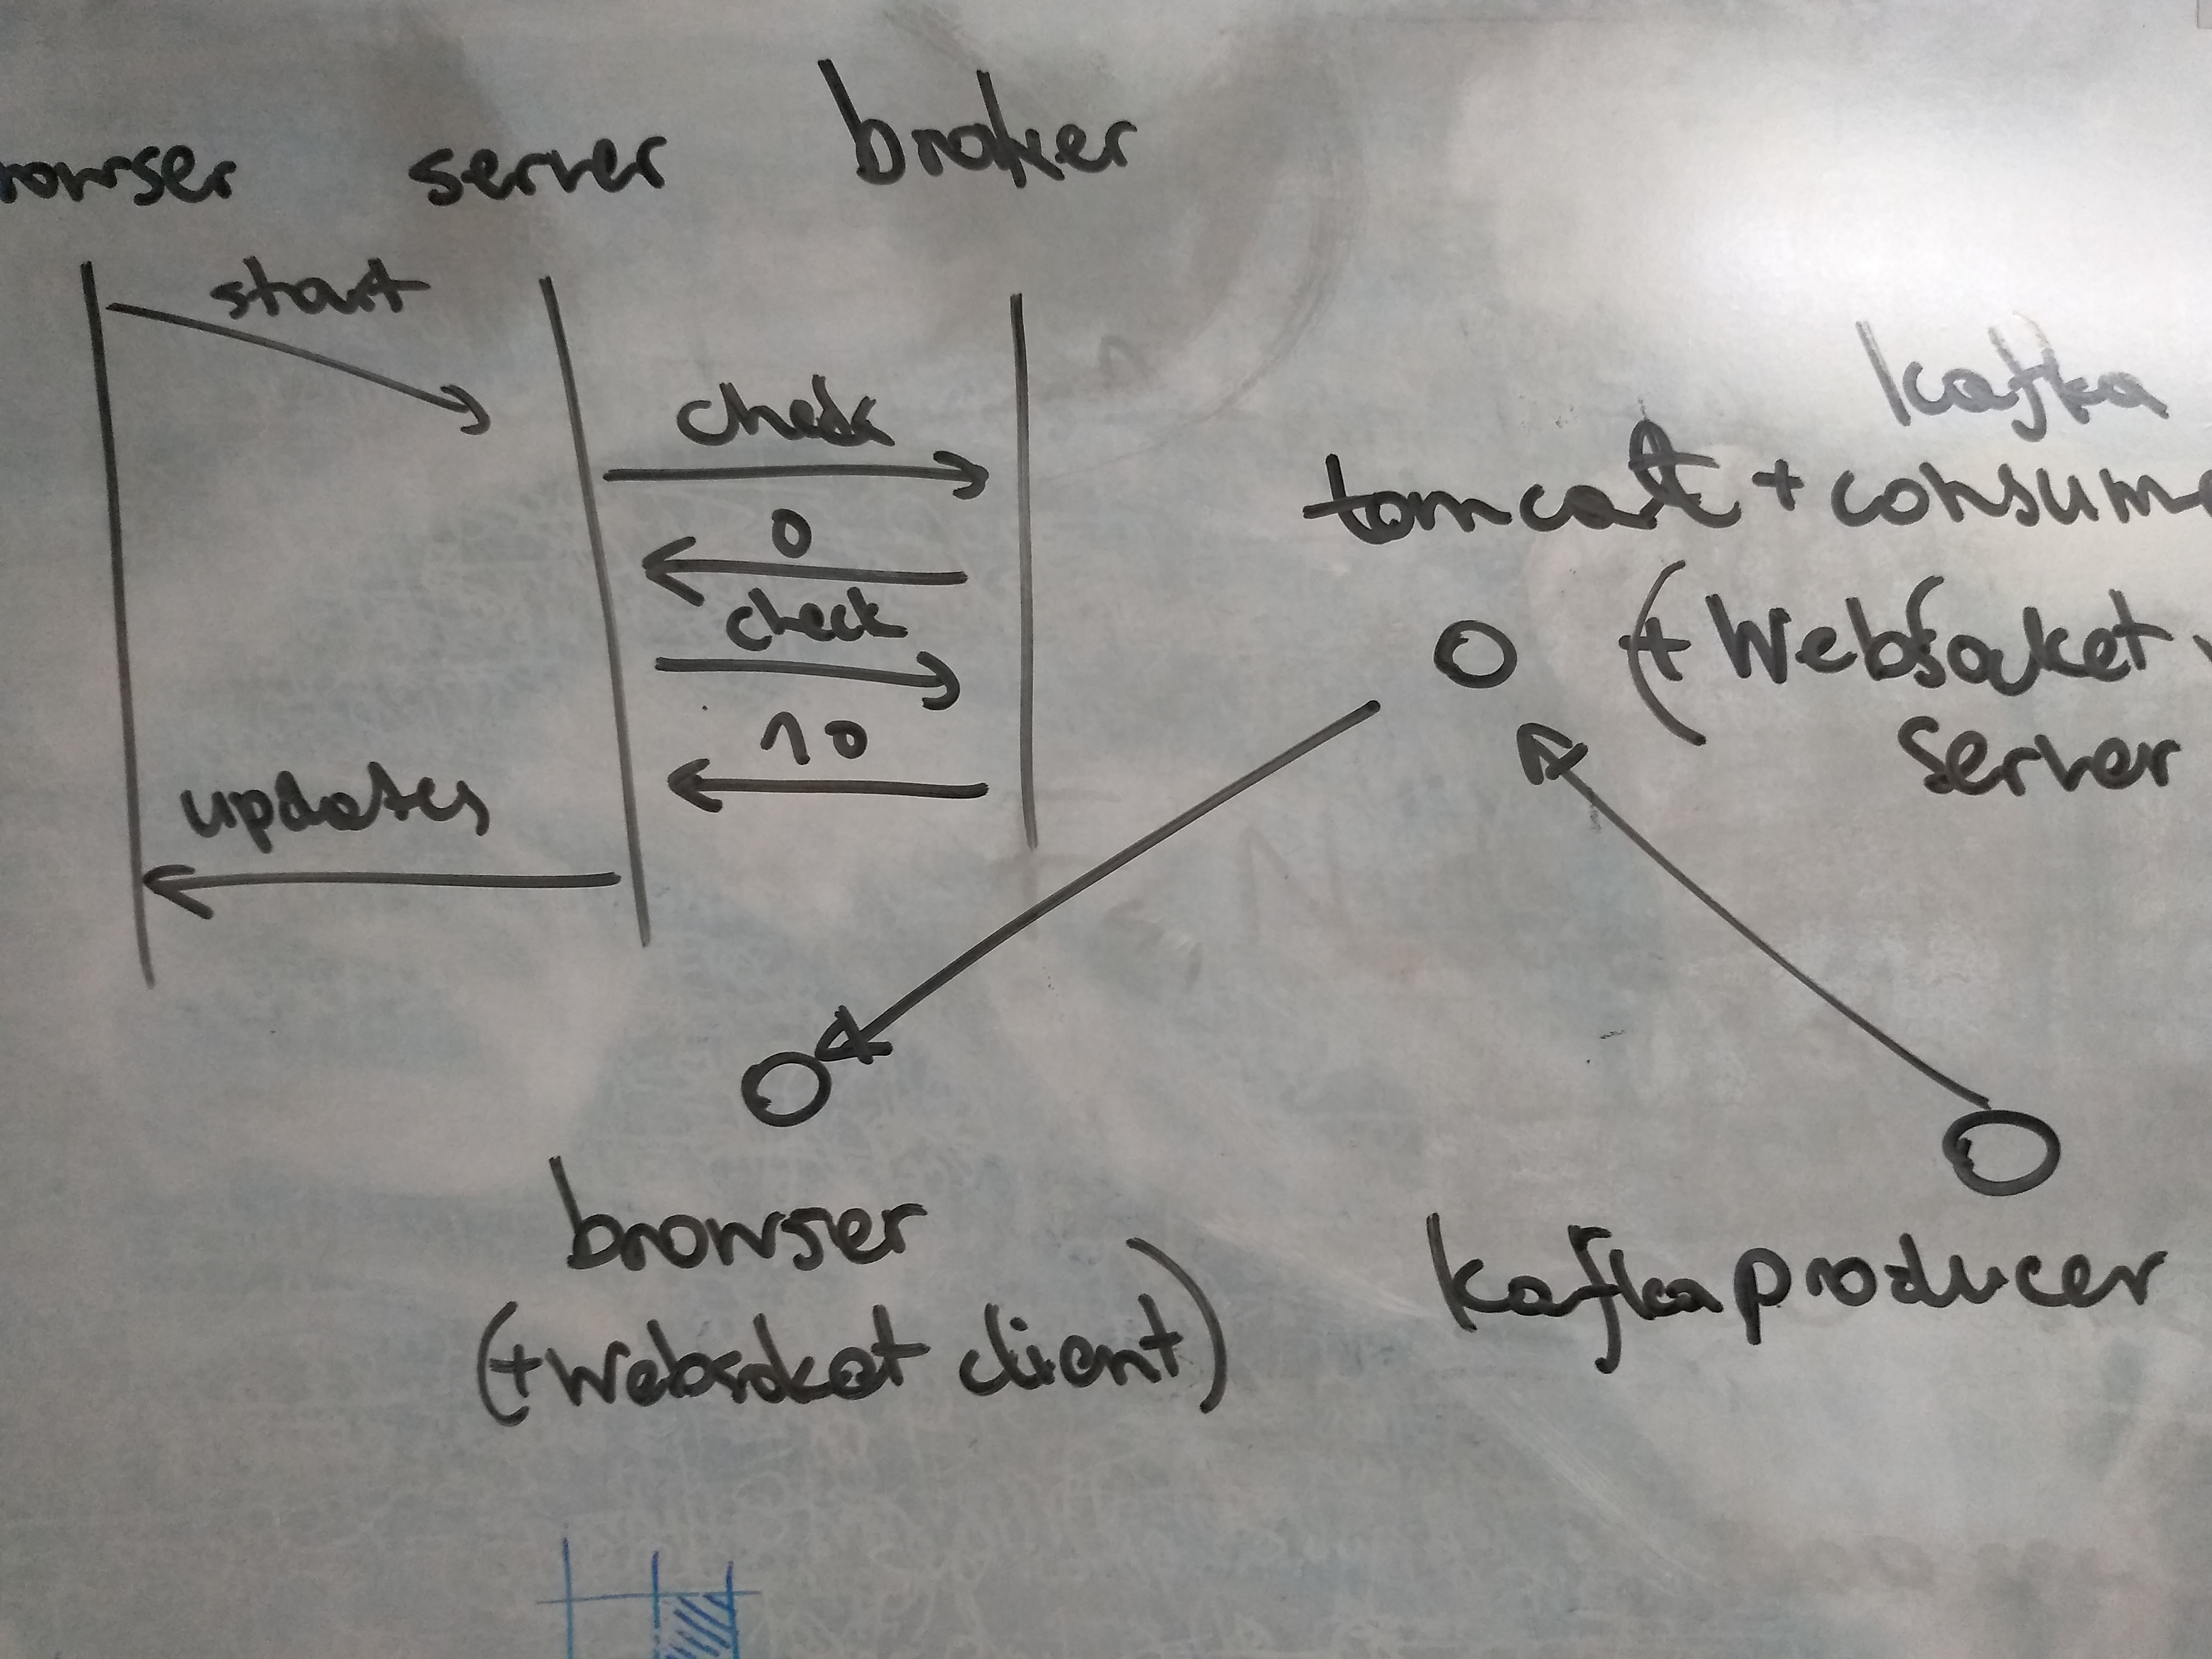 rowser server broker
start
check
0
check
10
updates
kafka
tomcat + consume
(+ Websocket
server
browser
(+ websoket client)
kafka producer